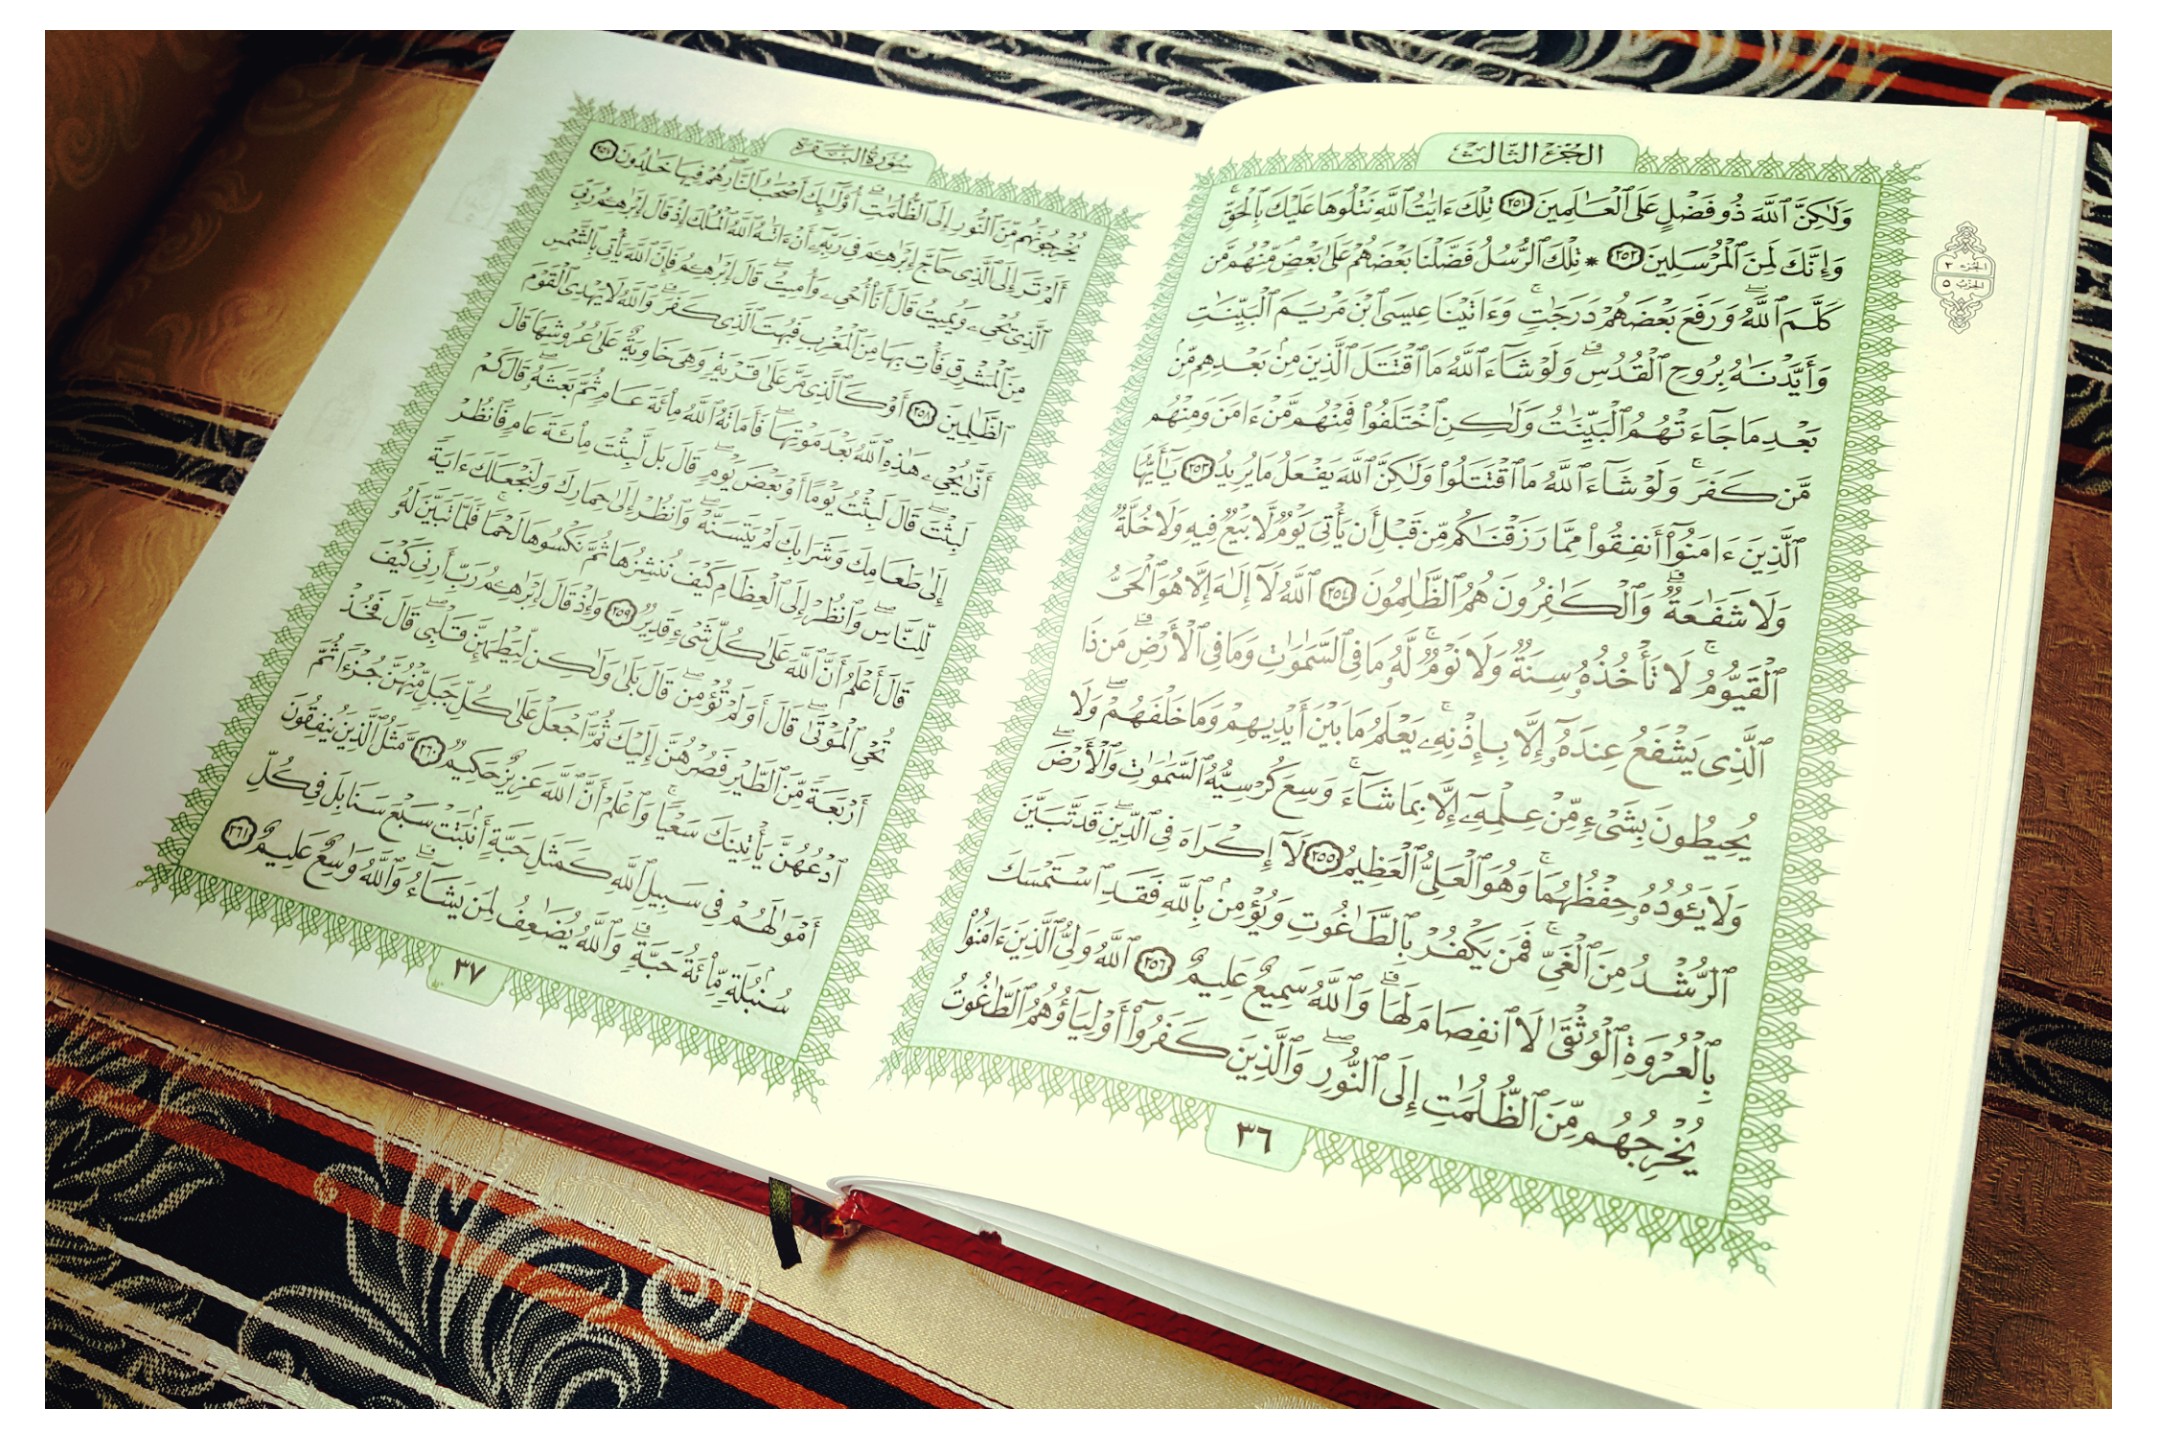 الجزء الثالث
وَلَٰكِنَّ ٱللَّهَ ذُو فَضْلٍ عَلَى ٱلْعَٰلَمِينَ ٢٥١ تِلْكَ ءَايَٰتُ ٱللَّهِ نَتْلُوهَا عَلَيْكَ بِٱلْحَقِّۚ
وَإِنَّكَ لَمِنَ ٱلْمُرْسَلِينَ ٢٥٢ * تِلْكَ ٱلرُّسُلُ فَضَّلْنَا بَعْضَهُمْ عَلَىٰ بَعْضٍۘ مِّنْهُم مَّن
كَلَّمَ ٱللَّهُۖ وَرَفَعَ بَعْضَهُمْ دَرَجَٰتٍۚ وَءَاتَيْنَا عِيسَى ٱبْنَ مَرْيَمَ ٱلْبَيِّنَٰتِ
وَأَيَّدْنَٰهُ بِرُوحِ ٱلْقُدُسِۗ وَلَوْ شَآءَ ٱللَّهُ مَا ٱقْتَتَلَ ٱلَّذِينَ مِنۢ بَعْدِهِم مِّنۢ
بَعْدِ مَا جَآءَتْهُمُ ٱلْبَيِّنَٰتُ وَلَٰكِنِ ٱخْتَلَفُوا۟ فَمِنْهُم مَّنْ ءَامَنَ وَمِنْهُم
مَّن كَفَرَۚ وَلَوْ شَآءَ ٱللَّهُ مَا ٱقْتَتَلُوا۟ وَلَٰكِنَّ ٱللَّهَ يَفْعَلُ مَا يُرِيدُ ٢٥٣ يَٰٓأَيُّهَا
ٱلَّذِينَ ءَامَنُوٓا۟ أَنفِقُوا۟ مِمَّا رَزَقْنَٰكُم مِّن قَبْلِ أَن يَأْتِىَ يَوْمٌ لَّا بَيْعٌ فِيهِ وَلَا خُلَّةٌ
وَلَا شَفَٰعَةٌۗ وَٱلْكَٰفِرُونَ هُمُ ٱلظَّٰلِمُونَ ٢٥٤ ٱللَّهُ لَآ إِلَٰهَ إِلَّا هُوَ ٱلْحَىُّ
ٱلْقَيُّومُۚ لَا تَأْخُذُهُۥ سِنَةٌ وَلَا نَوْمٌۚ لَّهُۥ مَا فِى ٱلسَّمَٰوَٰتِ وَمَا فِى ٱلْأَرْضِۗ مَن ذَا
ٱلَّذِى يَشْفَعُ عِندَهُۥٓ إِلَّا بِإِذْنِهِۦۚ يَعْلَمُ مَا بَيْنَ أَيْدِيهِمْ وَمَا خَلْفَهُمْۖ وَلَا
يُحِيطُونَ بِشَىْءٍ مِّنْ عِلْمِهِۦٓ إِلَّا بِمَا شَآءَۚ وَسِعَ كُرْسِيُّهُ ٱلسَّمَٰوَٰتِ وَٱلْأَرْضَۖ
وَلَا يَـُٔودُهُۥ حِفْظُهُمَاۚ وَهُوَ ٱلْعَلِىُّ ٱلْعَظِيمُ ٢٥٥ لَآ إِكْرَاهَ فِى ٱلدِّينِۖ قَد تَّبَيَّنَ
ٱلرُّشْدُ مِنَ ٱلْغَىِّۚ فَمَن يَكْفُرْ بِٱلطَّٰغُوتِ وَيُؤْمِنۢ بِٱللَّهِ فَقَدِ ٱسْتَمْسَكَ
بِٱلْعُرْوَةِ ٱلْوُثْقَىٰ لَا ٱنفِصَامَ لَهَاۗ وَٱللَّهُ سَمِيعٌ عَلِيمٌ ٢٥٦ ٱللَّهُ وَلِىُّ ٱلَّذِينَ ءَامَنُوا۟
يُخْرِجُهُم مِّنَ ٱلظُّلُمَٰتِ إِلَى ٱلنُّورِۖ وَٱلَّذِينَ كَفَرُوٓا۟ أَوْلِيَآؤُهُمُ ٱلطَّٰغُوتُ
٣٦
الجزء ٣
الحزب ٥
سورة البقرة
يُخْرِجُونَهُم مِّنَ ٱلنُّورِ إِلَى ٱلظُّلُمَٰتِۗ أُو۟لَٰٓئِكَ أَصْحَٰبُ ٱلنَّارِۖ هُمْ فِيهَا خَٰلِدُونَ ٢٥٧
أَلَمْ تَرَ إِلَى ٱلَّذِى حَآجَّ إِبْرَٰهِـۧمَ فِى رَبِّهِۦٓ أَنْ ءَاتَىٰهُ ٱللَّهُ ٱلْمُلْكَ إِذْ قَالَ إِبْرَٰهِـۧمُ رَبِّىَ
ٱلَّذِى يُحْىِۦ وَيُمِيتُ قَالَ أَنَا۠ أُحْىِۦ وَأُمِيتُۖ قَالَ إِبْرَٰهِـۧمُ فَإِنَّ ٱللَّهَ يَأْتِى بِٱلشَّمْسِ
مِنَ ٱلْمَشْرِقِ فَأْتِ بِهَا مِنَ ٱلْمَغْرِبِ فَبُهِتَ ٱلَّذِى كَفَرَۗ وَٱللَّهُ لَا يَهْدِى ٱلْقَوْمَ
ٱلظَّٰلِمِينَ ٢٥٨ أَوْ كَٱلَّذِى مَرَّ عَلَىٰ قَرْيَةٍ وَهِىَ خَاوِيَةٌ عَلَىٰ عُرُوشِهَا قَالَ
أَنَّىٰ يُحْىِۦ هَٰذِهِ ٱللَّهُ بَعْدَ مَوْتِهَاۖ فَأَمَاتَهُ ٱللَّهُ مِا۟ئَةَ عَامٍ ثُمَّ بَعَثَهُۥۖ قَالَ كَمْ
لَبِثْتَۖ قَالَ لَبِثْتُ يَوْمًا أَوْ بَعْضَ يَوْمٍۖ قَالَ بَل لَّبِثْتَ مِا۟ئَةَ عَامٍ فَٱنظُرْ
إِلَىٰ طَعَامِكَ وَشَرَابِكَ لَمْ يَتَسَنَّهْۖ وَٱنظُرْ إِلَىٰ حِمَارِكَ وَلِنَجْعَلَكَ ءَايَةً
لِّلنَّاسِۖ وَٱنظُرْ إِلَى ٱلْعِظَامِ كَيْفَ نُنشِزُهَا ثُمَّ نَكْسُوهَا لَحْمًاۚ فَلَمَّا تَبَيَّنَ لَهُۥ
قَالَ أَعْلَمُ أَنَّ ٱللَّهَ عَلَىٰ كُلِّ شَىْءٍ قَدِيرٌ ٢٥٩ وَإِذْ قَالَ إِبْرَٰهِـۧمُ رَبِّ أَرِنِى كَيْفَ
تُحْىِ ٱلْمَوْتَىٰۖ قَالَ أَوَلَمْ تُؤْمِنۖ قَالَ بَلَىٰ وَلَٰكِن لِّيَطْمَئِنَّ قَلْبِىۖ قَالَ فَخُذْ
أَرْبَعَةً مِّنَ ٱلطَّيْرِ فَصُرْهُنَّ إِلَيْكَ ثُمَّ ٱجْعَلْ عَلَىٰ كُلِّ جَبَلٍ مِّنْهُنَّ جُزْءًا ثُمَّ
ٱدْعُهُنَّ يَأْتِينَكَ سَعْيًاۚ وَٱعْلَمْ أَنَّ ٱللَّهَ عَزِيزٌ حَكِيمٌ ٢٦٠ مَّثَلُ ٱلَّذِينَ يُنفِقُونَ
أَمْوَٰلَهُمْ فِى سَبِيلِ ٱللَّهِ كَمَثَلِ حَبَّةٍ أَنۢبَتَتْ سَبْعَ سَنَابِلَ فِى كُلِّ
سُنۢبُلَةٍ مِّا۟ئَةُ حَبَّةٍۗ وَٱللَّهُ يُضَٰعِفُ لِمَن يَشَآءُۗ وَٱللَّهُ وَٰسِعٌ عَلِيمٌ ٢٦١
٣٧